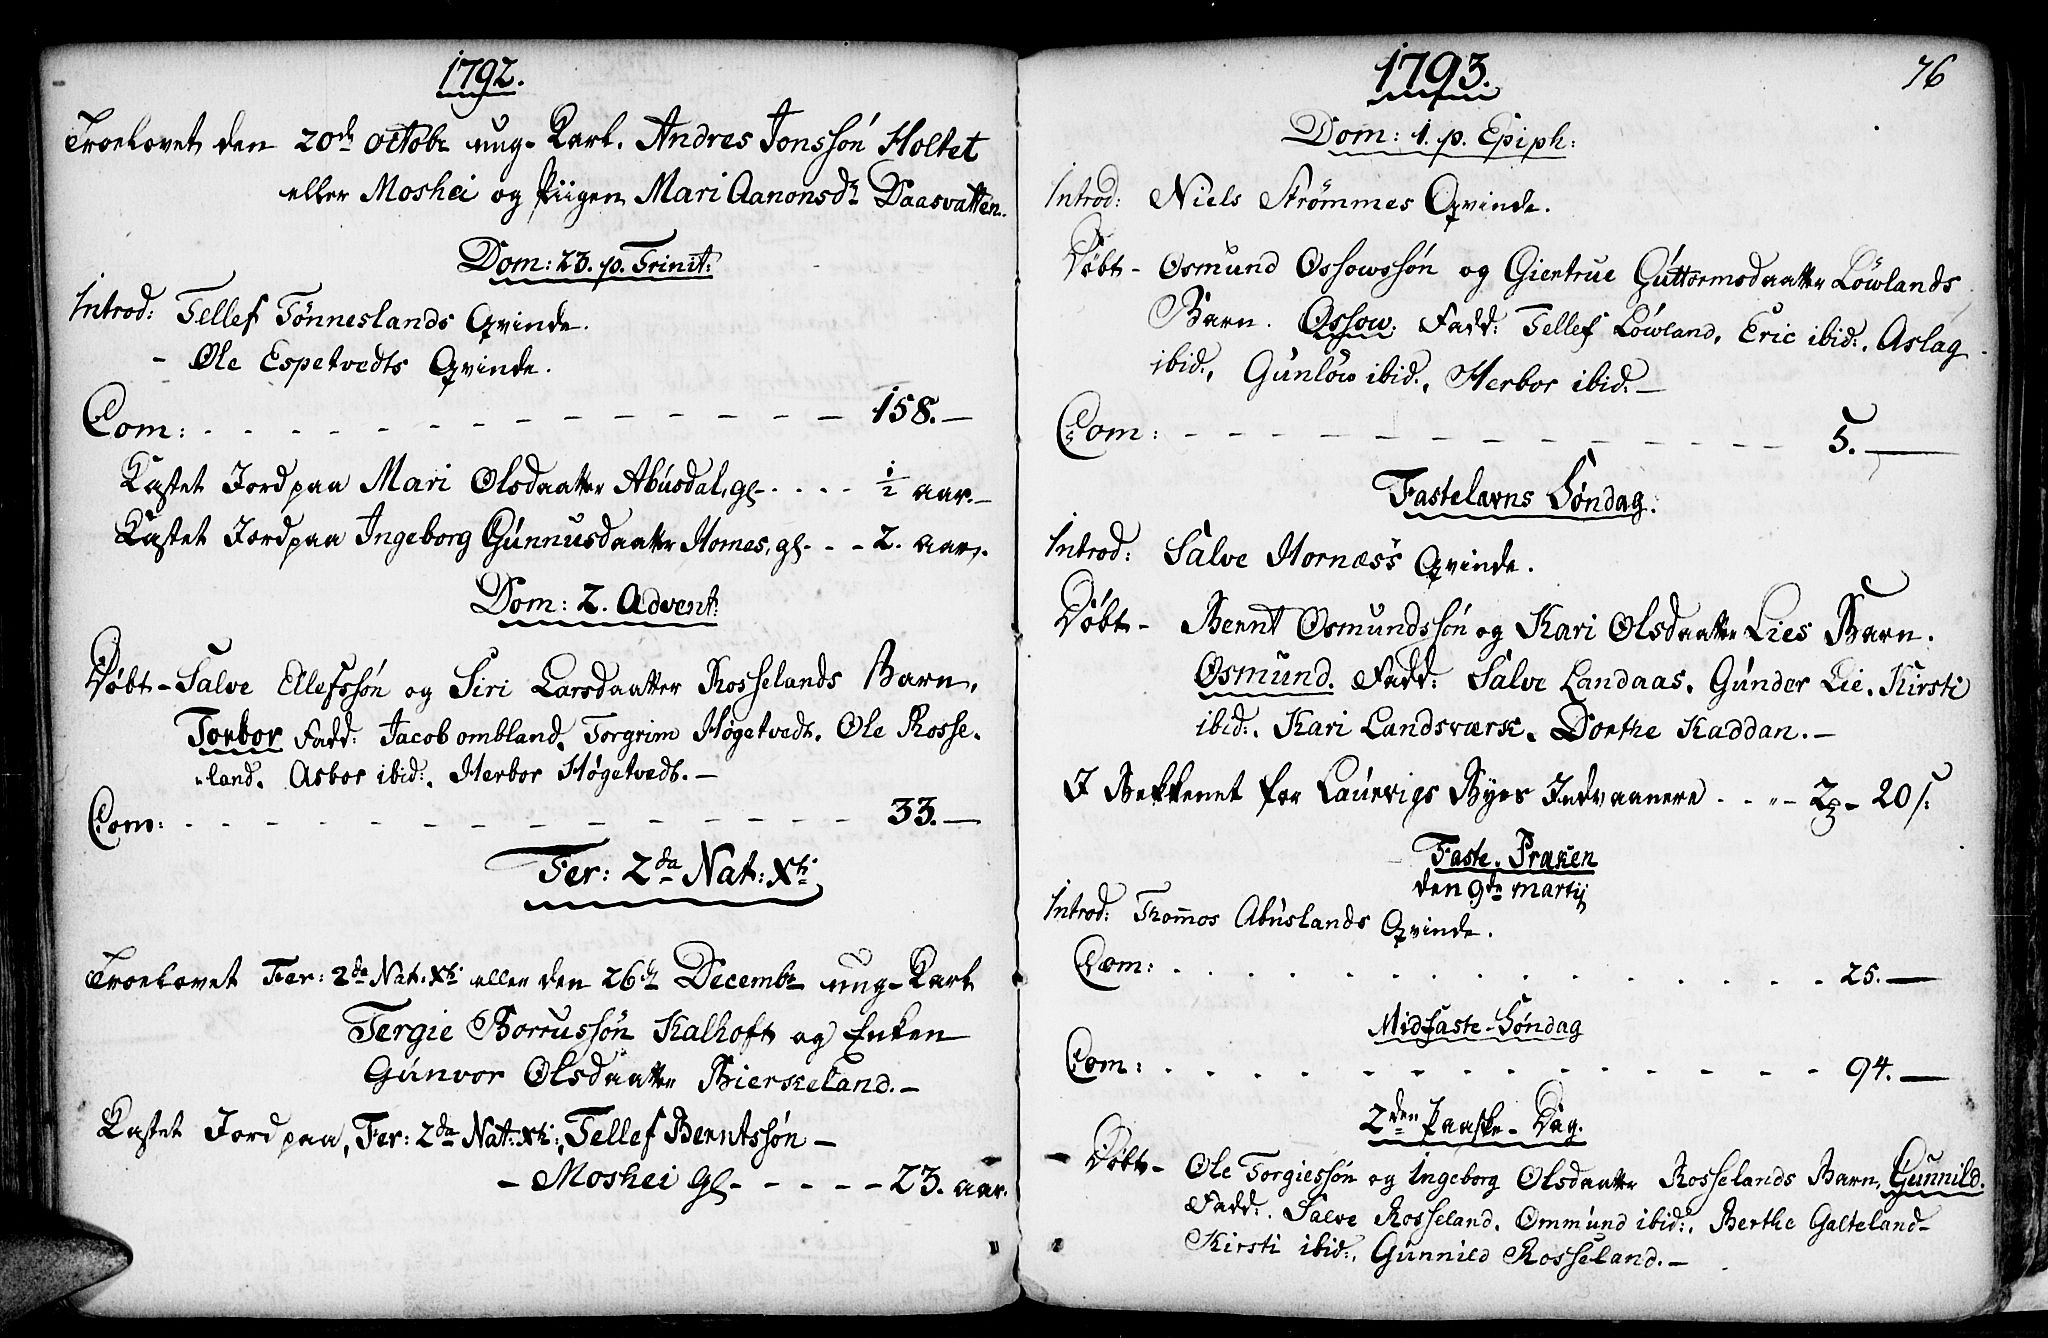 1792.
Troelovet den 20de Octobr ung-Karl. Andres Jonssøn Holtet
eller Moshei og Piigen Mari Aanonsdr Daasvatten.
Dom: 23. p. Trinit:
Introd: Tellef Tønneslands Qvinde.
- Ole Espetvedts Qvinde.
Com: - - - - - - - - - - 158. -
Kastet Jord paa Mari Olsdaatter Abusdal, gl - . . . - ½ aar. -
Kastet Jord paa Ingeborg Gunnusdaatter Homes, gl - . - - 2. aar.
Dom: 2. Advent:
Døbt - Salve Ellefssøn og Siri Larsdaatter Rosselands Barn,
Torbor Fadd: Jacob ombland, Torgrim Høgetvedt. Ole Rosse-
land. Asbor ibid:, Herbor Høgetvedt. -
Com: - - - - - - - - - - 33. -
Fer: 2da Nat: Xti
Troelovet Fer: 2da Nat: Xti eller den 26de Decembr ung-Karl
Tergie Borrussøn Kalhoft og Enken
Gunvor Olsdaatter Bierkeland. -
Kastet Jord paa, Fer: 2da Nat: Xti:, Tellef Berntssøn -
- Moshei gl - - - - - 23. aar.
1793.
76
Dom: 1. p. Epiph:
Introd: Niels Strømmes Qvinde.
Døbt - Osmund Ossowssøn og Giertrue Guttormsdaatter Løwlands
Barn. Ossow. Fadd: Tellef Løwland, Eric ibid:, Aslag
ibid:, Gunløw ibid., Herbor ibid: -
Com: - - - - - - - - - - 5. -
Fastelavns Søndag:
Introd: Salve Hornæs's Qvinde.
Døbt - Bernt Osmundssøn og Kari Olsdaatter Lies Barn.
Osmund. Fadd: Salve Landaas, Gunder Lie, Kirsti
ibid:, Kari Landsværk, Dorthe Kaddan. -
I Bekkenet for Laurvigs Byes Indvaanere . . . - 2 - 20 s:
Faste-Præken
den 9de Martij
Introd: Thommos Abuslands Qvinde.
Com: . . . . . . . . . . 25. -
Midfaste-Søndag
Com: . . . . . . . . . . 94. -
2den Paaske-Dag.
- Døbt - Ole Torgiessøn og Ingeborg Olsdaatter Rosselands Barn, Gunnild.
Fadd:. Salve Rosseland, Ommund ibid:, Berthe Galteland -
Kirsti ibid:, Gunnild Rosseland. -